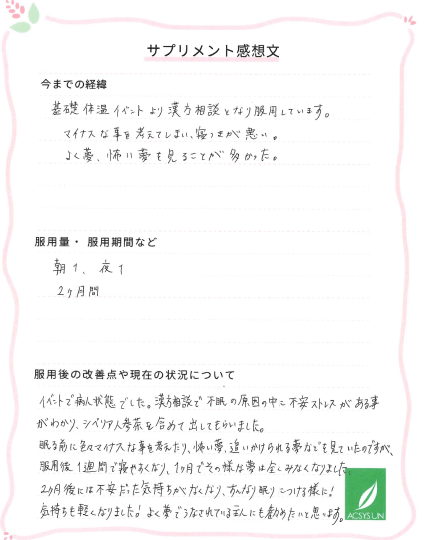 サプリメント感想文
今までの経緯
基礎体温イベントより漢方相談となり服用しています。
マイナスな事を考えてしまい、寝つきが悪い。
よく夢、怖い夢を見ることが多かった。
服用量・服用期間など
朝1、夜1
2ヶ月間
服用後の改善点や現在の状況について
イベントで病人状態でした。漢方相談で不眠の原因の中に不安ストレスがある事
がわかり、シベリア人参茶を含めて出してもらいました。
眠る前に色々マイナスな事を考えたり、怖い夢、追いかけられる夢などを見ていたのですが、
服用後1週間で寝やすくなり、1ヶ月でその様な夢は全くみなくなりました。
2ヶ月後には不安だった気持ちがなくなり、すんなり眠りにつける様に!
気持ちも軽くなりました!よく夢でうなされている主人にも勧めたいと思います。
ACSYS UN